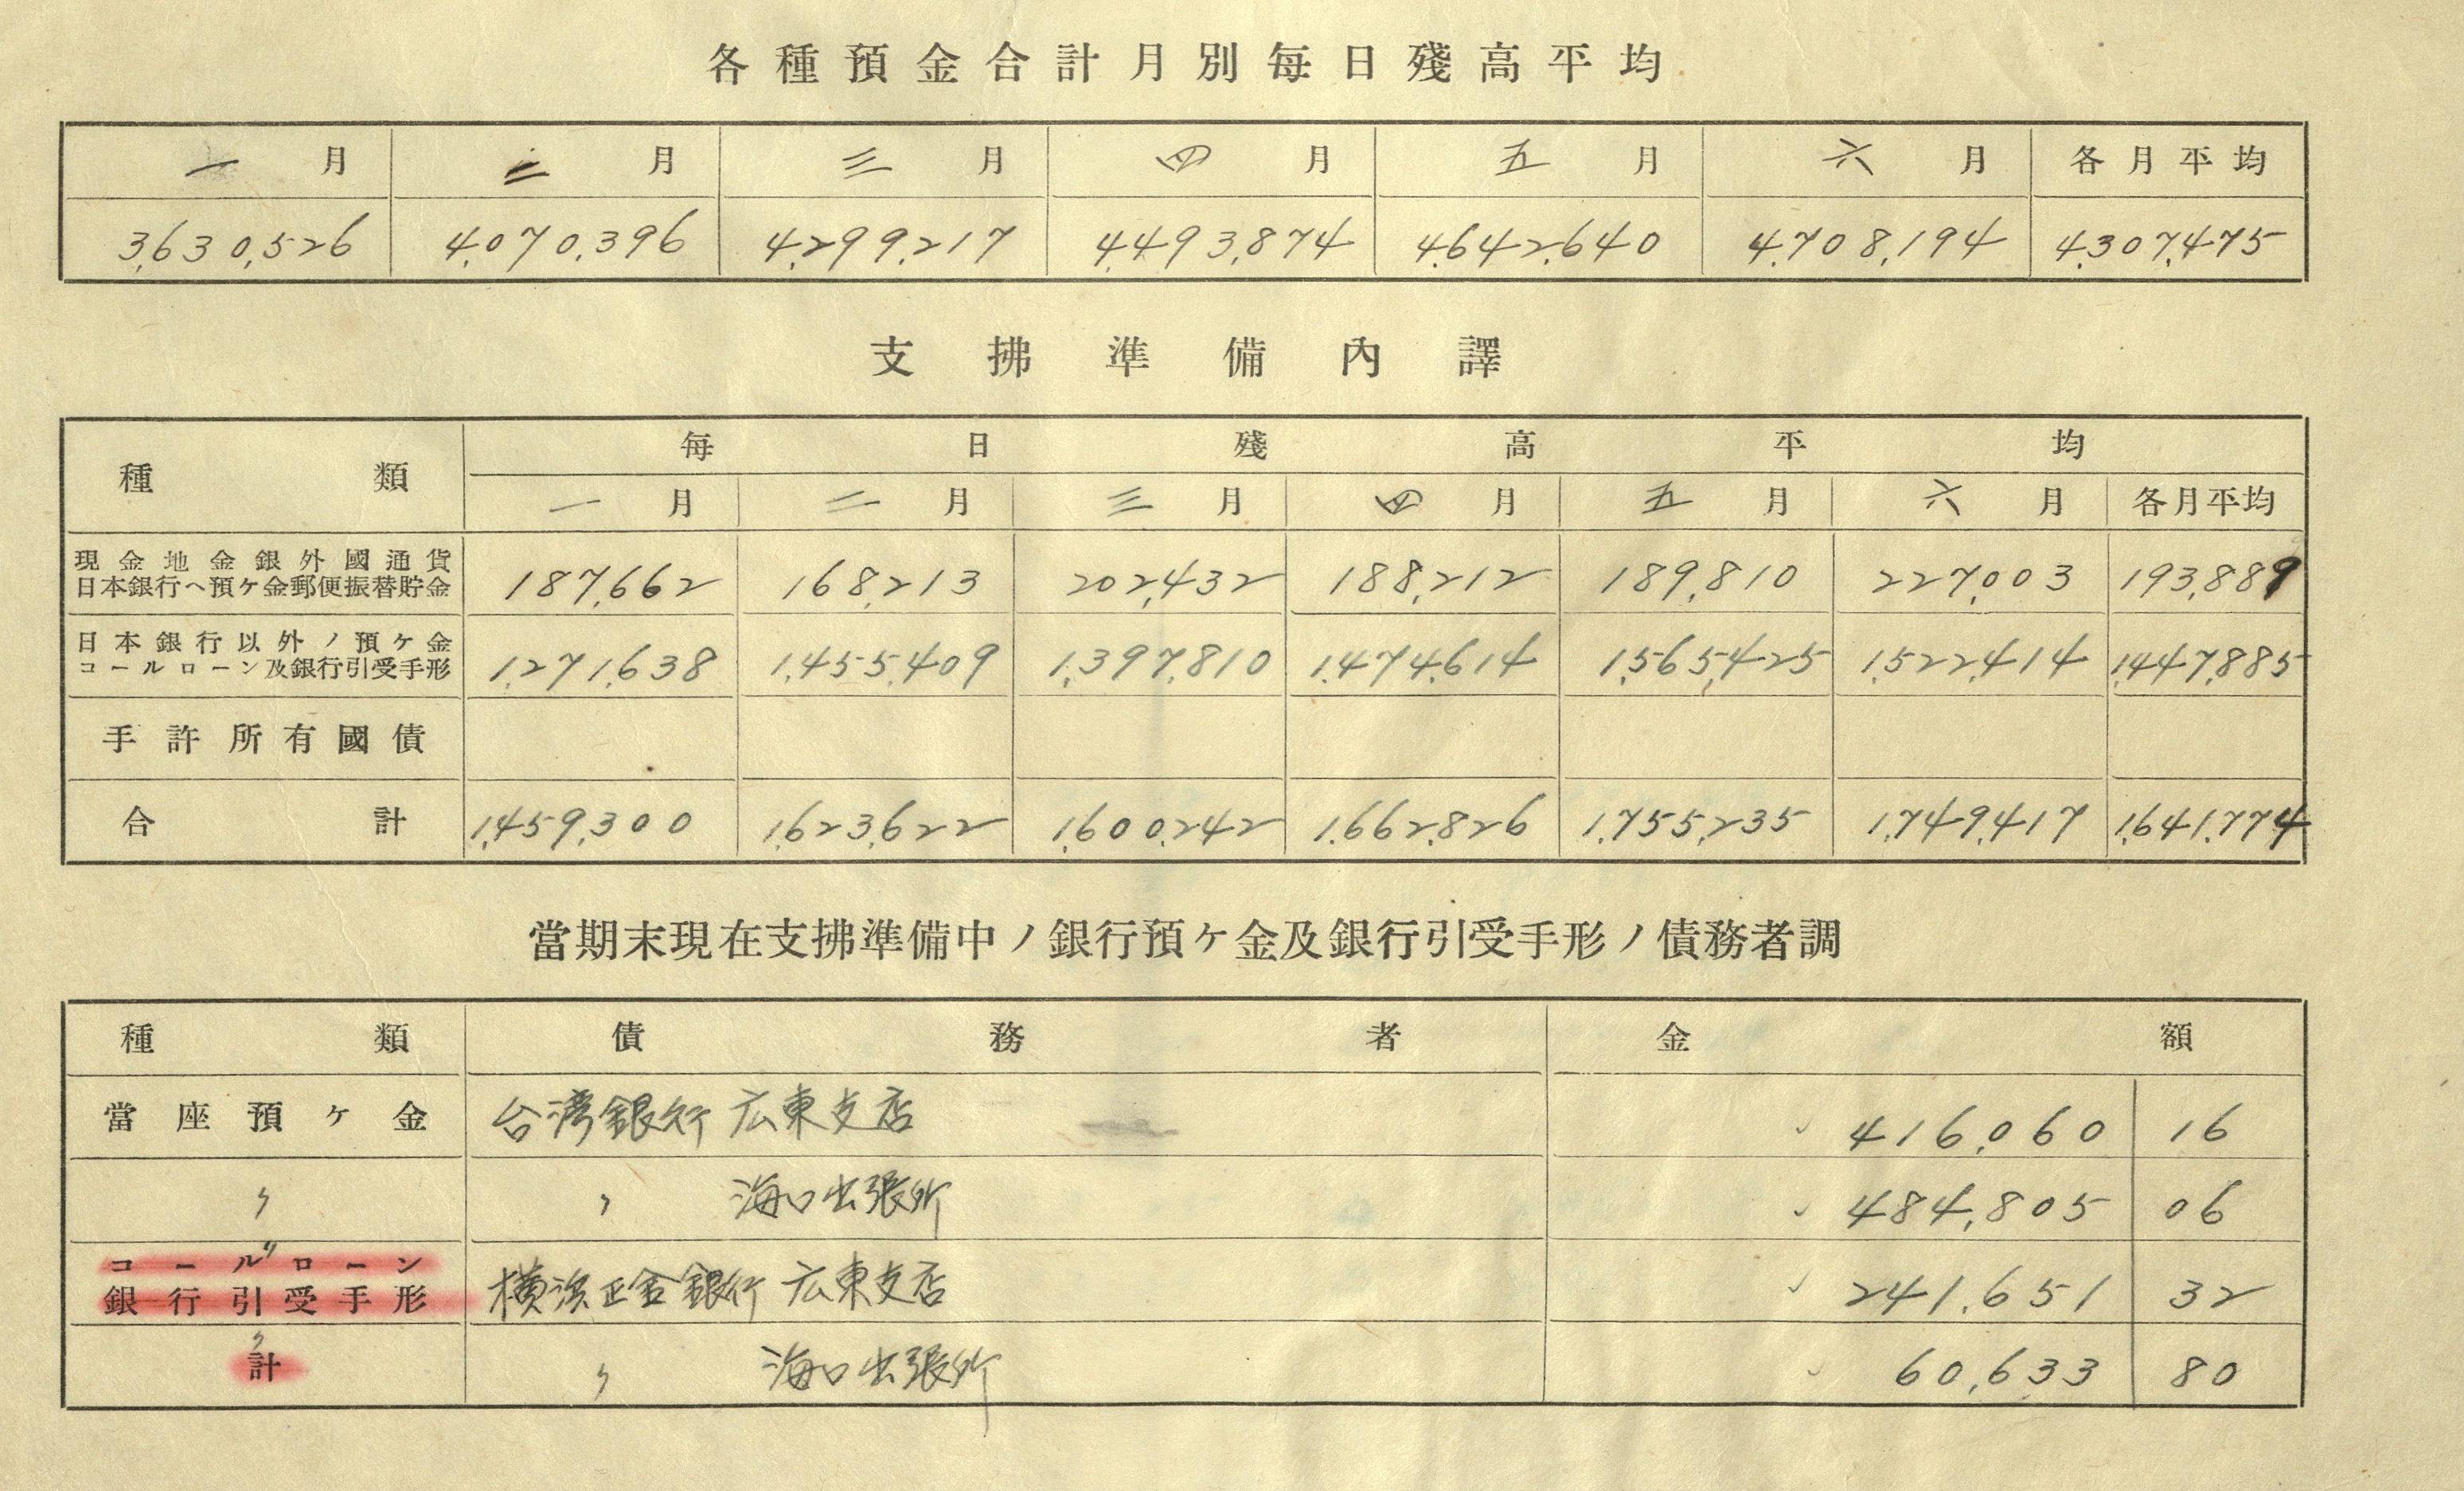 各種預金合計月別每日殘高平均
一月 二月 三月 四月 五月 六月 各月平均
3,630,526 4,070,396 4,299,217 4,493,874 4,642,640 4,708,194 4,307,475
支拂準備內譯
種類 每日殘高平均
一月 二月 三月 四月 五月 六月 各月平均
現金地金銀外國通貨
日本銀行ヘ預ケ金郵便振替貯金 187,662 168,213 202,432 188,212 189,810 227,003 193,889
日本銀行以外ノ預ケ金
コールローン及銀行引受手形 1,271,638 1,455,409 1,397,810 1,474,614 1,565,425 1,522,414 1,447,885
手許所有國債
合計 1,459,300 1,623,622 1,600,242 1,662,826 1,755,235 1,749,417 1,641,774
當期末現在支拂準備中ノ銀行預ケ金及銀行引受手形ノ債務者調
種類 債務者 金額
當座預ケ金 台湾銀行 広東支店 416,060 16
〃 〃 海口出張所 484,805 06
〃
コールローン
銀行引受手形 横浜正金銀行 広東支店 241,651 32
〃
計 〃 海口出張所 60,633 80